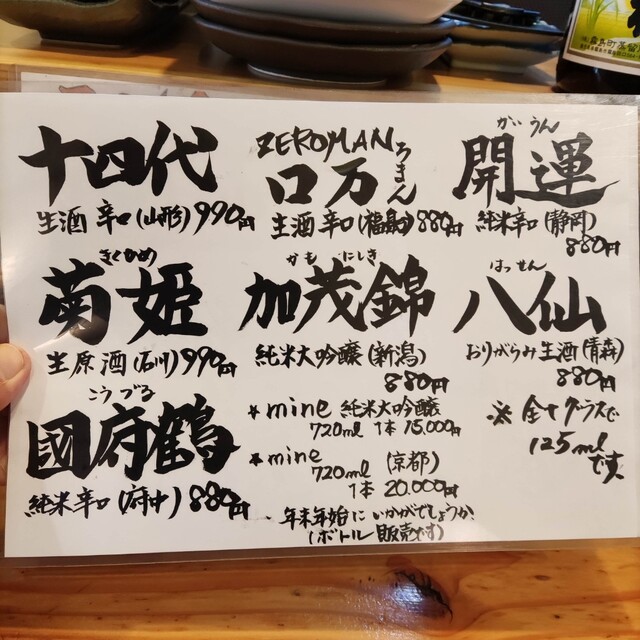 十四代
生酒 辛口(山形)990円
ZEROMAN
ろまん
口万
生酒 辛口(福島)880円
かいうん
開運
純米辛口(静岡)
880円
きくひめ
菊姫
生原酒(石川)990円
かも にしき
加茂錦
純米大吟醸(新潟)
880円
はっせん
八仙
おりがらみ生酒(青森)
880円
こうづる
國府鶴
純米辛口(府中)880円
★mine 純米大吟醸
720ml 1本 15,000円
★mine (京都)
720ml
1本 20,000円
年末年始にいかがでしょうか、
(ボトル販売です)
※全てグラスで
125mlです。